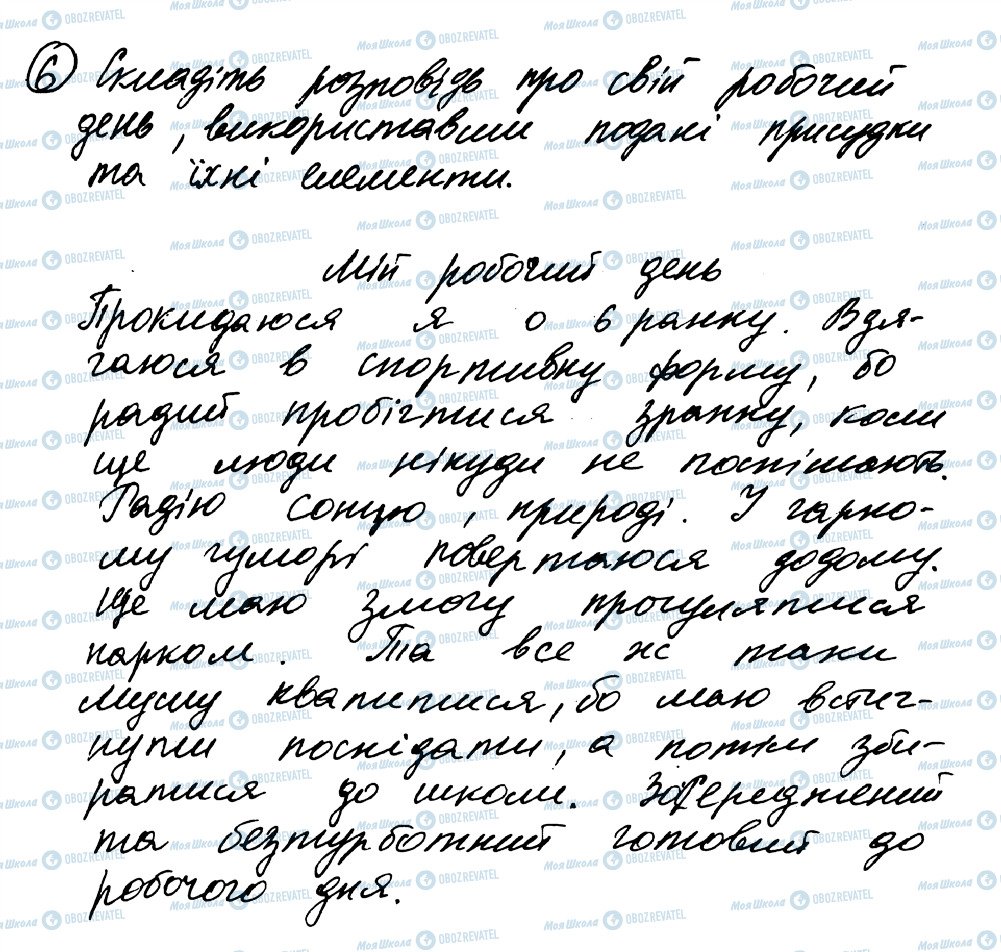 6 Складіть розповідь про свій робочий
день, використавши подані присудки
та їхні елементи.
Мій робочий день
Прокидаюся я о 6 ранку. Вдя-
гаюся в спортивну форму, бо
радий пробігтися зранку, коли
ще люди нікуди не поспішають.
Радію сонцю, природі. У гарно-
му гуморі повертаюся додому.
Ще маю змогу прогулятися
парком. Та все ж таки
мушу квапитися, бо маю встиг-
нути поснідати, а потім зби-
ратися до школи. Зосереджений
та безтурботний готовий до
робочого дня.